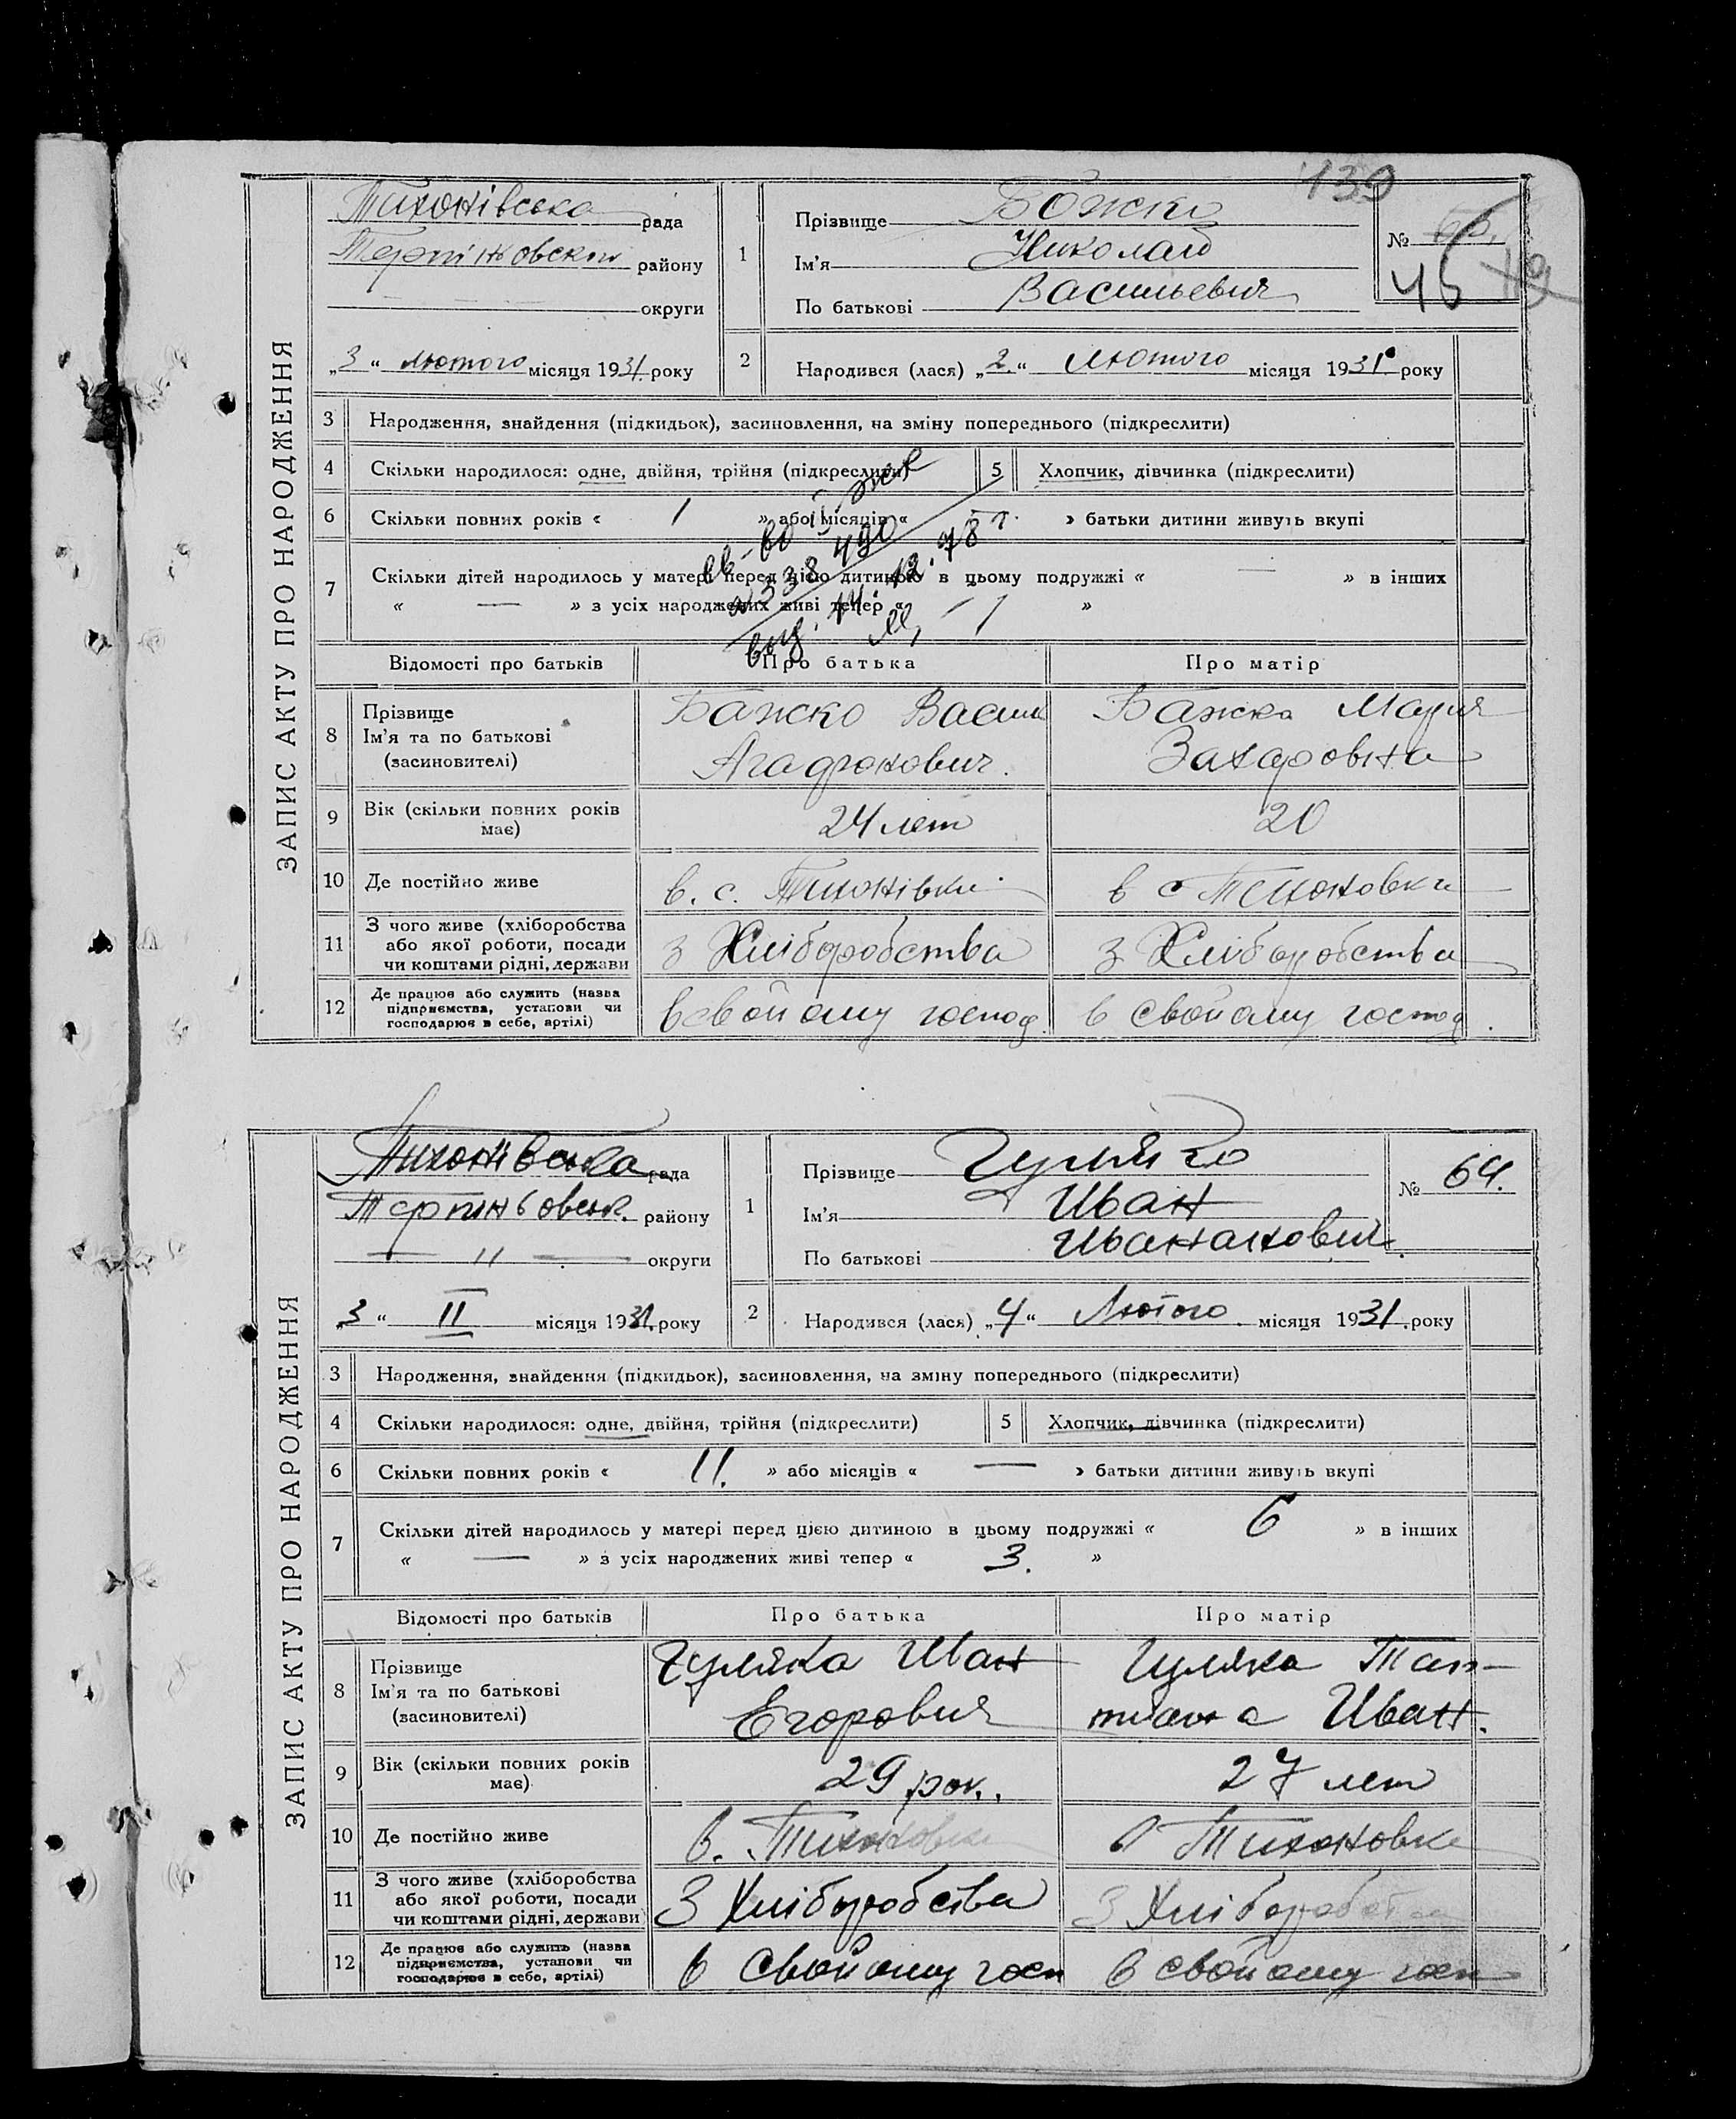 139
ЗАПИС АКТУ ПРО НАРОДЖЕННЯ
Тихонівська рада
Терпіньовской району
округи
„3“ лютого місяця 1931. року
1
Прізвище Божко
Ім'я Николай
По батькові Васильевич
№ 63.
45
2
Народився (лася) „2.“ Лютого місяця 1931. року
3 Народження, знайдення (підкидьок), засиновлення, на зміну попереднього (підкреслити)
4 Скільки народилося: одне, двійня, трійня (підкреслити)
5 Хлопчик, дівчинка (підкреслити)
6 Скільки повних років « 1 » або місяців « — » батьки дитини живуть вкупі
7 Скільки дітей народилось у матері перед цією дитиною в цьому подружжі « — » в інших
« — » з усіх народжених живі тепер « – 1 »
538490
выд. 14.12.78 г.
Відомості про батьків Про батька Про матір
8 Прізвище
Ім'я та по батькові
(засиновителі)
Бажко Васили
Агафонович.
Бажка Мария
Захаровна
9 Вік (скільки повних років має) 24 лет 20
10 Де постійно живе в. с. Тихонівки в с Тихоновки
11 З чого живе (хліборобства
або якої роботи, посади
чи коштами рідні, держави
з Хліборобства з Хліборобства
12 Де працює або служить (назва
підприємства, установи чи
господарює в себе, артілі)
в свойому господ. в свойому господ.
ЗАПИС АКТУ ПРО НАРОДЖЕННЯ
Тихонівська рада
Терпіньовськ. району
— " — округи
„3“ II місяця 1931. року
1
Прізвище Гуляко
Ім'я Иван
По батькові Ивананович.
№ 64.
2
Народився (лася) „4“ Лютого місяця 1931. року
3 Народження, знайдення (підкидьок), засиновлення, на зміну попереднього (підкреслити)
4 Скільки народилося: одне, двійня, трійня (підкреслити)
5 Хлопчик, дівчинка (підкреслити)
6 Скільки повних років « 11. » або місяців « — » батьки дитини живуть вкупі
7 Скільки дітей народилось у матері перед цією дитиною в цьому подружжі « 6 » в інших
« — » з усіх народжених живі тепер « 3. »
Відомості про батьків Про батька Про матір
8 Прізвище
Ім'я та по батькові
(засиновителі)
Гуляка Иван
Егорович
Гуляка Тат-
тиана Иван.
9 Вік (скільки повних років має) 29 рок. 27 лет
10 Де постійно живе в. Тихоновке в Тихоновке
11 З чого живе (хліборобства
або якої роботи, посади
чи коштами рідні, держави
З Хліборобства З Хліборобства
12 Де працює або служить (назва
підприємства, установи чи
господарює в себе, артілі)
в свойому госп в свойому госп